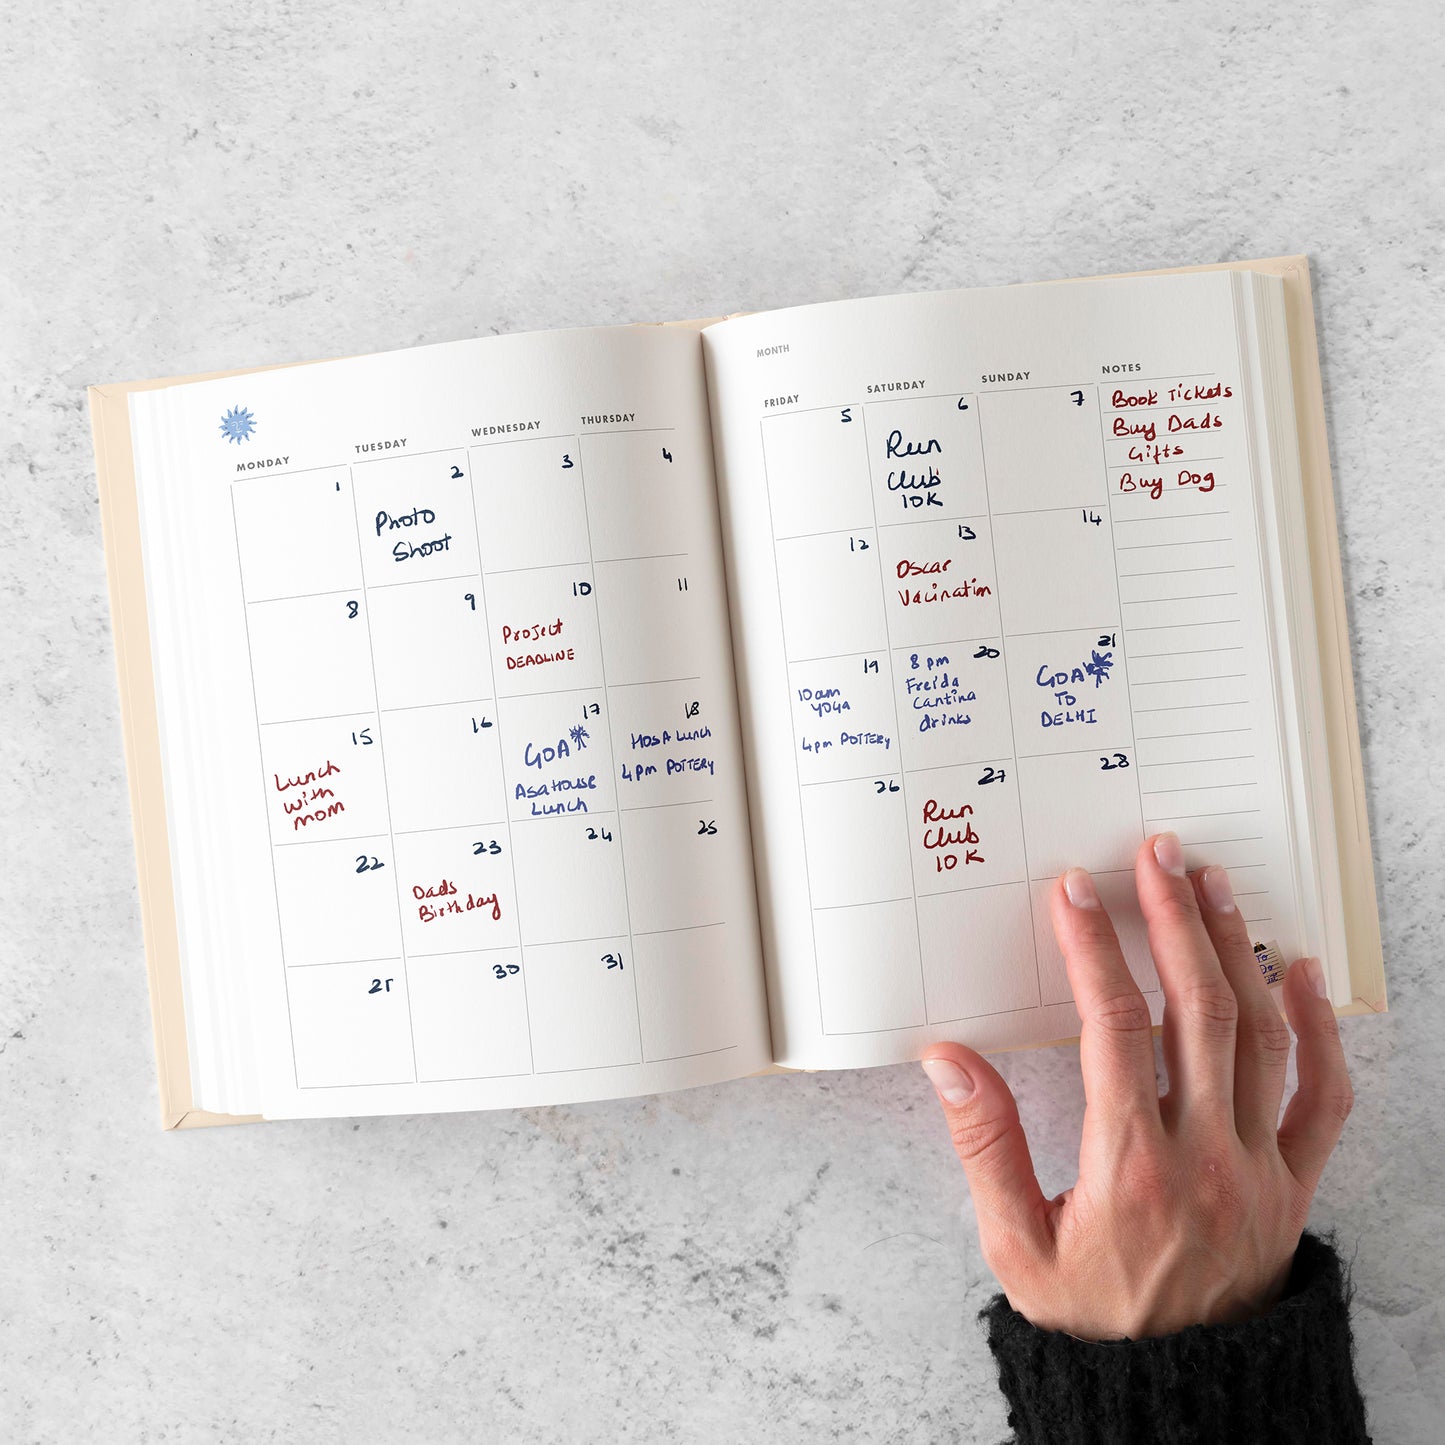 MONDAY TUESDAY WEDNESDAY THURSDAY
1 2 3 4
Photo
Shoot
8 9 10 11
Project
DEADLINE
15 16 17 18
Lunch
with
mom
GOA
Asa House
Lunch
Hosa Lunch
4pm POTTERY
22 23 24 25
Dads
Birthday
30 31
MONTH
FRIDAY SATURDAY SUNDAY NOTES
5 6 7
Run
Club
10K
Book Tickets
Buy Dads
Gifts
Buy Dog
12 13 14
Oscar
Vacination
19 20 21
10am
YOGA
4pm POTTERY
8 pm
Freida
Cantina
drinks
GOA
TO
DELHI
26 27 28
Run
Club
10K
To
Do